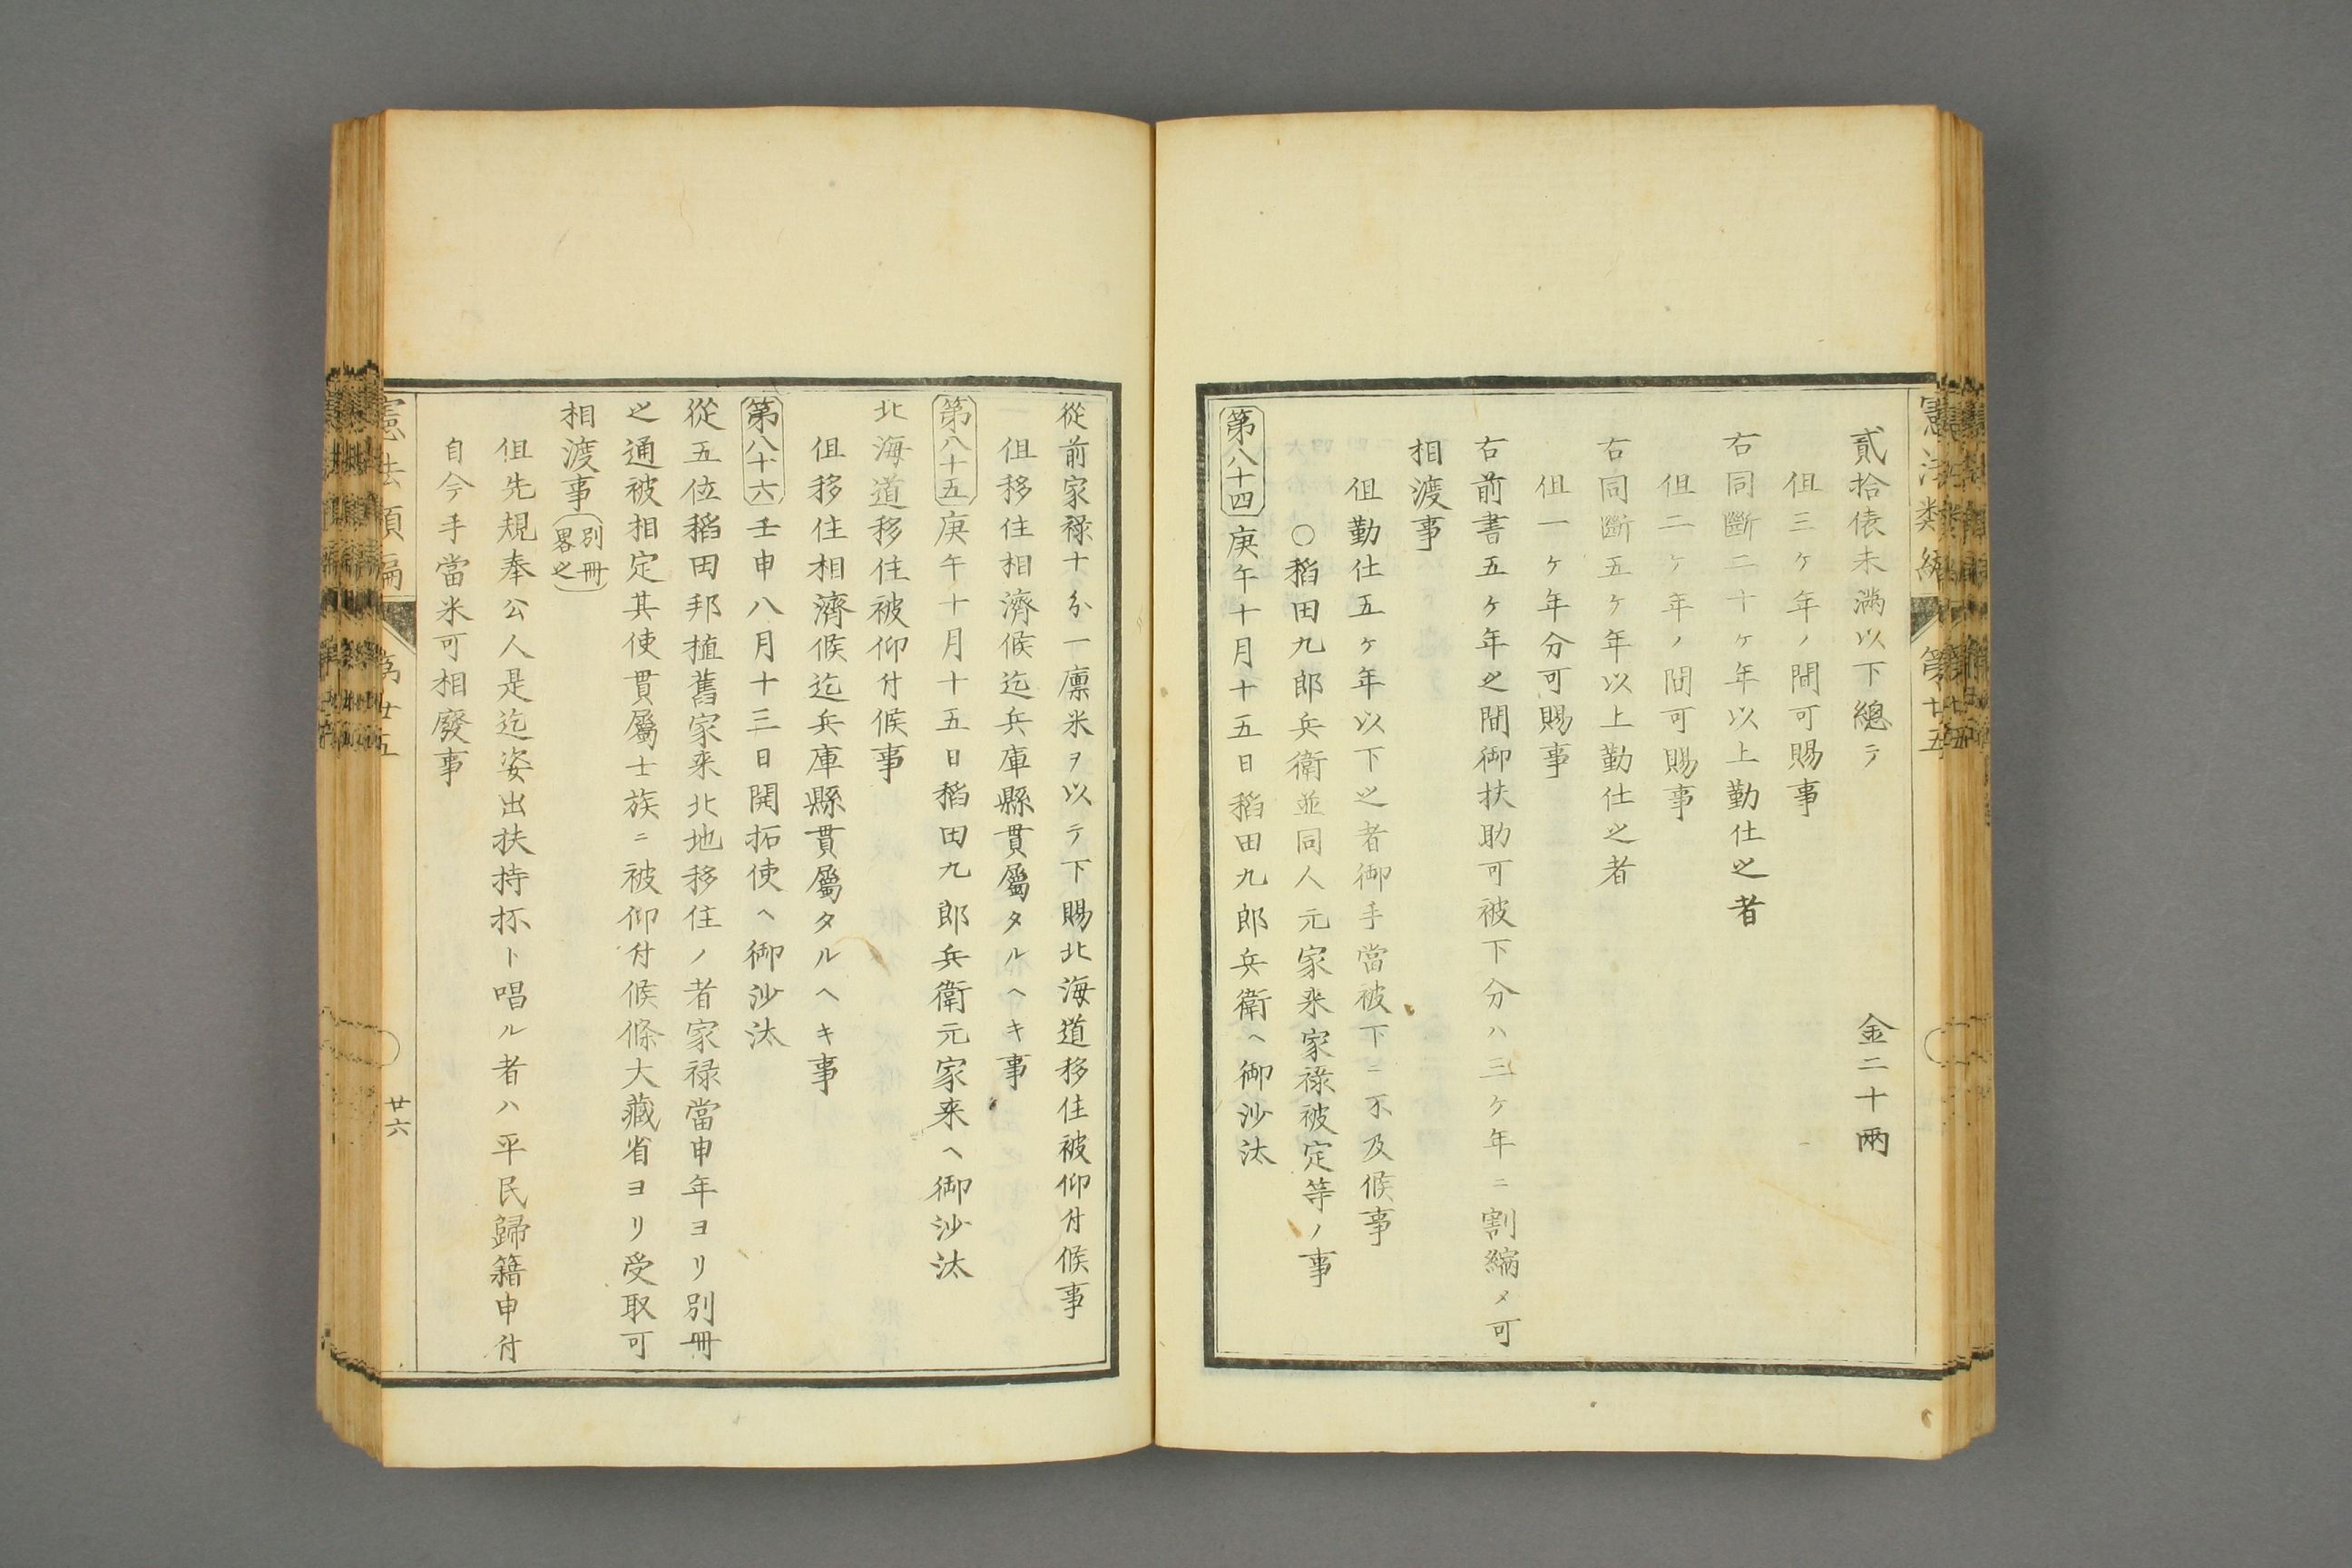 憲法類編
第廿五
貳拾俵未滿以下總テ　金二十兩
伹三ケ年ノ間可賜事
右同斷二十ケ年以上勤仕之者
伹二ケ年ノ間可賜事
右同斷五ケ年以上勤仕之者
伹一ケ年分可賜事
右前書五ケ年之間御扶助可被下分ハ三ケ年ニ割縮メ可
相渡事
伹勤仕五ケ年以下之者御手當被下ニ不及候事
○稻田九郎兵衛並同人元家來家祿被定等ノ事
第八十四庚午十月十五日稻田九郎兵衛ヘ御沙汰
從前家祿十分一廩米ヲ以テ下賜北海道移住被仰付候事
伹移住相濟候迄兵庫縣貫屬タルヘキ事
第八十五庚午十月十五日稻田九郎兵衛元家来ヘ御沙汰
北海道移住被仰付候事
伹移住相濟候迄兵庫縣貫屬タルヘキ事
第八十六壬申八月十三日開拓使ヘ御沙汰
從五位稻田邦植舊家来北地移住ノ者家祿當申年ヨリ別冊
之通被相定其使貫屬士族ニ被仰付候條大藏省ヨリ受取可
相渡事(別冊畧之)
伹先規奉公人是迄姿出扶持抔ト唱ル者ハ平民歸籍申付
自今手當米可相廢事
憲法類編
第廿五
廿六